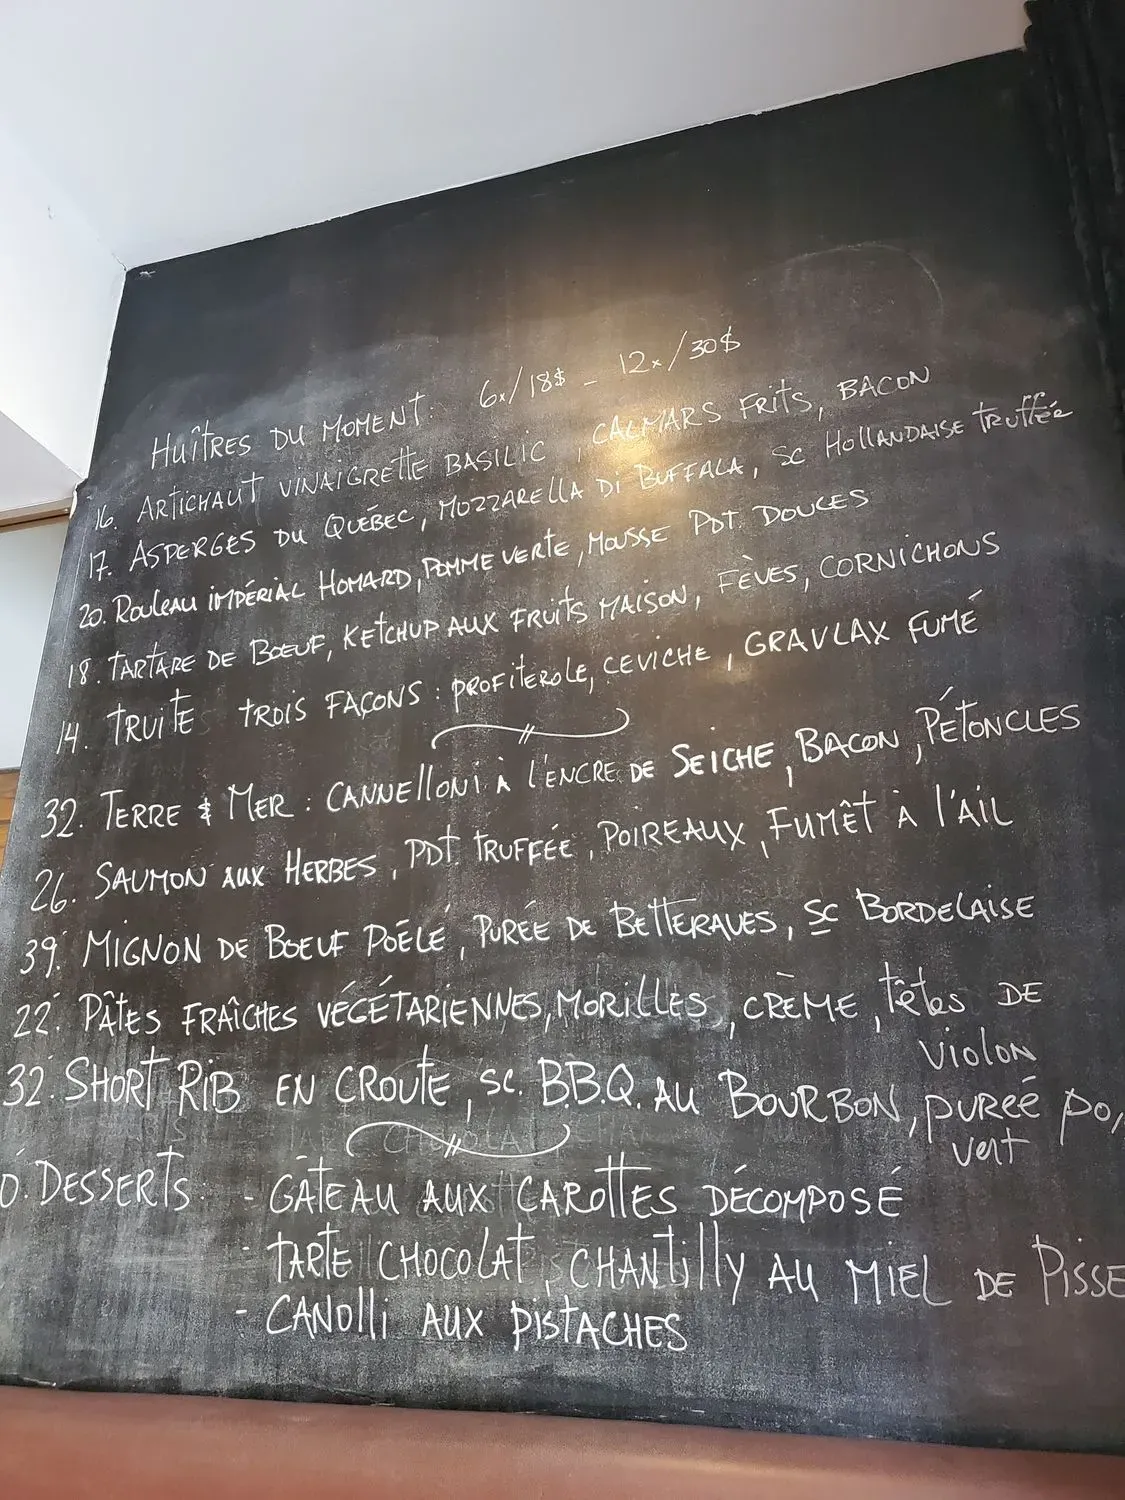 HUÎTRES DU MOMENT: 6x/18$ - 12x/30$
16. ARTICHAUT VINAIGRETTE BASILIC, CALMARS FRITS, BACON
17. ASPERGES DU QUÉBEC, MOZZARELLA DI BUFFALA, SC HOLLANDAISE TRUFFÉE
20. ROULEAU IMPÉRIAL HOMARD, POMME VERTE, MOUSSE PDT DOUCES
18. TARTARE DE BOEUF, KETCHUP AUX FRUITS MAISON, FÈVES, CORNICHONS
14. TRUITE TROIS FAÇONS : PROFITEROLE, CEVICHE, GRAVLAX FUMÉ
32. TERRE & MER : CANNELLONI À L'ENCRE DE SEICHE, BACON, PÉTONCLES
26. SAUMON AUX HERBES, PDT TRUFFÉE, POIREAUX, FUMÊT À L'AIL
39. MIGNON DE BOEUF POÊLÉ, PURÉE DE BETTERAVES, SC BORDELAISE
22. PÂTES FRAÎCHES VÉGÉTARIENNES, MORILLES, CRÈME, TÊTES DE
VIOLON
32. SHORT RIB EN CROUTE, SC. B.B.Q. AU BOURBON, PURÉE PO
VERT
0. DESSERTS: - GÂTEAU AUX CAROTTES DÉCOMPOSÉ
- TARTE CHOCOLAT, CHANTILLY AU MIEL DE PISSE
- CANOLLI AUX PISTACHES